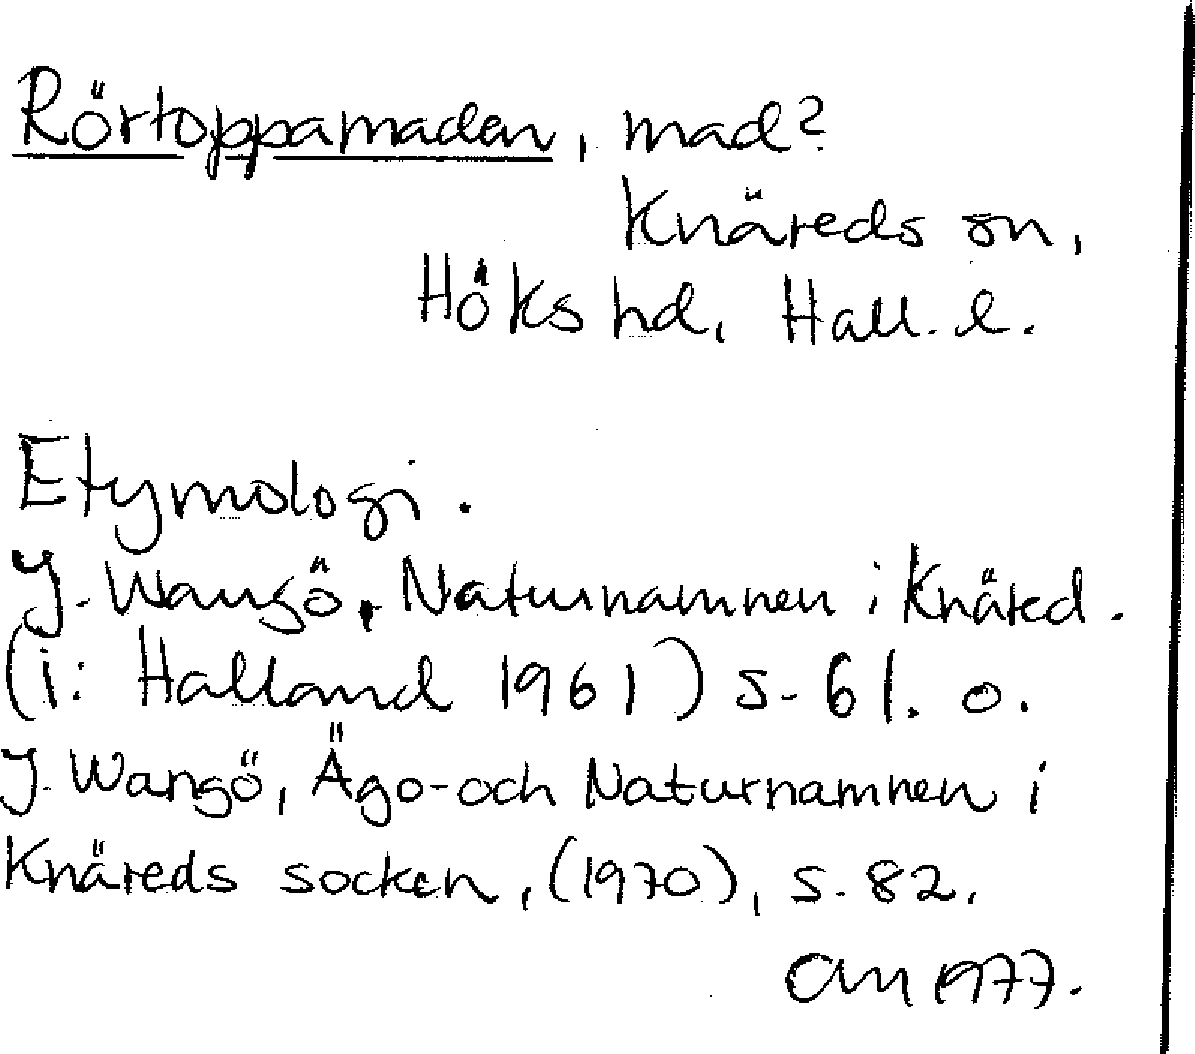 Rörtoppamaden, mad?
Knäreds sn,
Höks hd, Hall. l.
Etymologi.
J. Wangö, Naturnamnen i Knäred.
(i: Halland 1961) s. 61. o.
J. Wangö, Ägo- och Naturnamnen i
Knäreds socken, (1970), s. 82.
1977.